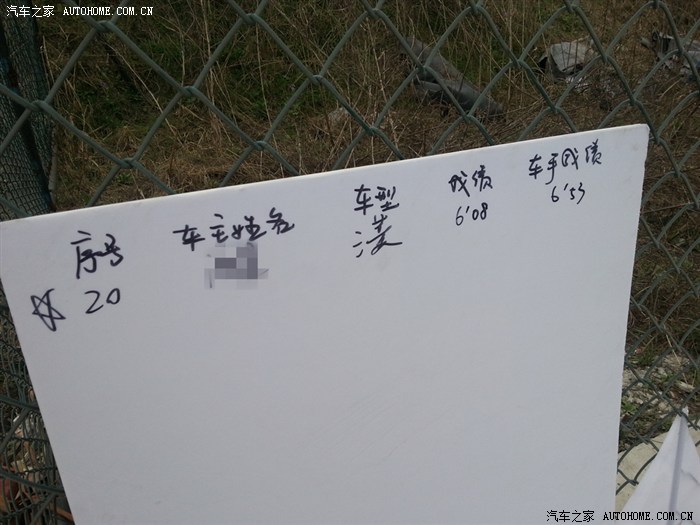 汽车之家 AUTOHOME.COM.CN
序号 车主姓名 车型 成绩 车手成绩
☆ 20 凌 6'08 6'53
汽车之家 AUTOHOME.COM.CN